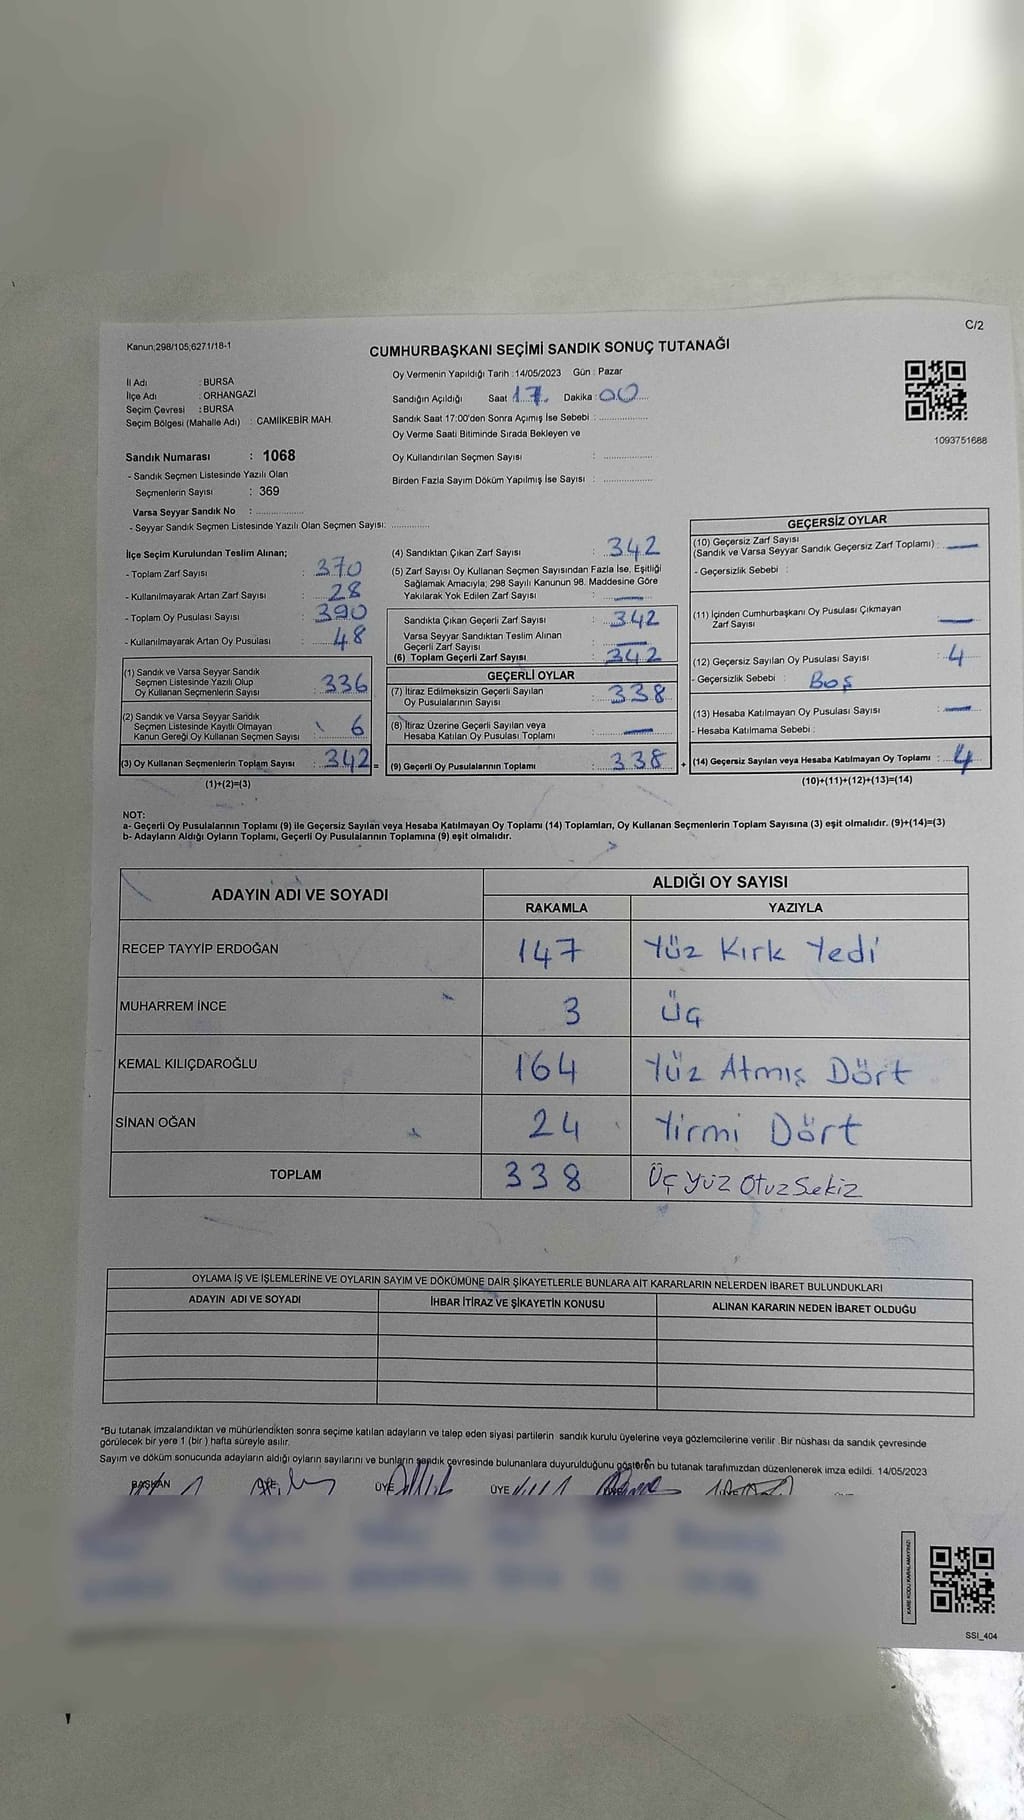 C/2
Kanun;298/105,6271/18-1
CUMHURBAŞKANI SEÇİMİ SANDIK SONUÇ TUTANAĞI
İl Adı : BURSA
İlçe Adı : ORHANGAZİ
Seçim Çevresi : BURSA
Seçim Bölgesi (Mahalle Adı) : CAMİİKEBİR MAH.
Oy Vermenin Yapıldığı Tarih :14/05/2023 Gün : Pazar
Sandığın Açıldığı Saat 17 Dakika : 00
Sandık Saat 17:00'den Sonra Açımış İse Sebebi :
Oy Verme Saati Bitiminde Sırada Bekleyen ve
Oy Kullandırılan Seçmen Sayısı :
Birden Fazla Sayım Döküm Yapılmış İse Sayısı :
1093751688
Sandık Numarası : 1068
- Sandık Seçmen Listesinde Yazılı Olan
Seçmenlerin Sayısı : 369
Varsa Seyyar Sandık No :
- Seyyar Sandık Seçmen Listesinde Yazılı Olan Seçmen Sayısı:
İlçe Seçim Kurulundan Teslim Alınan;
- Toplam Zarf Sayısı : 370
- Kullanılmayarak Artan Zarf Sayısı : 28
- Toplam Oy Pusulası Sayısı : 390
- Kullanılmayarak Artan Oy Pusulası : 48
(1) Sandık ve Varsa Seyyar Sandık
Seçmen Listesinde Yazılı Olup
Oy Kullanan Seçmenlerin Sayısı : 336
(2) Sandık ve Varsa Seyyar Sandık
Seçmen Listesinde Kayıtlı Olmayan
Kanun Gereği Oy Kullanan Seçmen Sayısı : 6
(3) Oy Kullanan Seçmenlerin Toplam Sayısı : 342 =
(1)+(2)=(3)
(4) Sandıktan Çıkan Zarf Sayısı : 342
(5) Zarf Sayısı Oy Kullanan Seçmen Sayısından Fazla İse, Eşitliği
Sağlamak Amacıyla; 298 Sayılı Kanunun 98. Maddesine Göre
Yakılarak Yok Edilen Zarf Sayısı : —
Sandıkta Çıkan Geçerli Zarf Sayısı : 342
Varsa Seyyar Sandıktan Teslim Alınan
Geçerli Zarf Sayısı : —
(6) Toplam Geçerli Zarf Sayısı : 342
GEÇERLİ OYLAR
(7) İtiraz Edilmeksizin Geçerli Sayılan
Oy Pusulalarının Sayısı : 338
(8) İtiraz Üzerine Geçerli Sayılan veya
Hesaba Katılan Oy Pusulası Toplamı : —
(9) Geçerli Oy Pusulalarının Toplamı : 338 +
GEÇERSİZ OYLAR
(10) Geçersiz Zarf Sayısı
(Sandık ve Varsa Seyyar Sandık Geçersiz Zarf Toplamı) : —
- Geçersizlik Sebebi :
(11) İçinden Cumhurbaşkanı Oy Pusulası Çıkmayan
Zarf Sayısı : —
(12) Geçersiz Sayılan Oy Pusulası Sayısı : 4
- Geçersizlik Sebebi : Boş
(13) Hesaba Katılmayan Oy Pusulası Sayısı : —
- Hesaba Katılmama Sebebi :
(14) Geçersiz Sayılan veya Hesaba Katılmayan Oy Toplamı : 4
(10)+(11)+(12)+(13)=(14)
NOT:
a- Geçerli Oy Pusulalarının Toplamı (9) ile Geçersiz Sayılan veya Hesaba Katılmayan Oy Toplamı (14) Toplamları, Oy Kullanan Seçmenlerin Toplam Sayısına (3) eşit olmalıdır. (9)+(14)=(3)
b- Adayların Aldığı Oyların Toplamı, Geçerli Oy Pusulalarının Toplamına (9) eşit olmalıdır.
ADAYIN ADI VE SOYADI ALDIĞI OY SAYISI
RAKAMLA YAZIYLA
RECEP TAYYİP ERDOĞAN 147 Yüz Kırk Yedi
MUHARREM İNCE 3 Üç
KEMAL KILIÇDAROĞLU 164 Yüz Atmış Dört
SİNAN OĞAN 24 Yirmi Dört
TOPLAM 338 Üç Yüz Otuz Sekiz
OYLAMA İŞ VE İŞLEMLERİNE VE OYLARIN SAYIM VE DÖKÜMÜNE DAİR ŞİKAYETLERLE BUNLARA AİT KARARLARIN NELERDEN İBARET BULUNDUKLARI
ADAYIN ADI VE SOYADI İHBAR İTİRAZ VE ŞİKAYETİN KONUSU ALINAN KARARIN NEDEN İBARET OLDUĞU
*Bu tutanak imzalandıktan ve mühürlendikten sonra seçime katılan adayların ve talep eden siyasi partilerin sandık kurulu üyelerine veya gözlemcilerine verilir .Bir nüshası da sandık çevresinde
görülecek bir yere 1 (bir ) hafta süreyle asılır.
Sayım ve döküm sonucunda adayların aldığı oyların sayılarını ve bunların sandık çevresinde bulunanlara duyurulduğunu gösteren bu tutanak tarafımızdan düzenlenerek imza edildi. 14/05/2023
BAŞKAN ÜYE ÜYE ÜYE ÜYE
KARE KODU KARALAMAYINIZ!
SSI_404